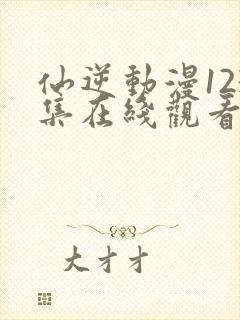 仙逆動漫12
集在綫觀看
大才才